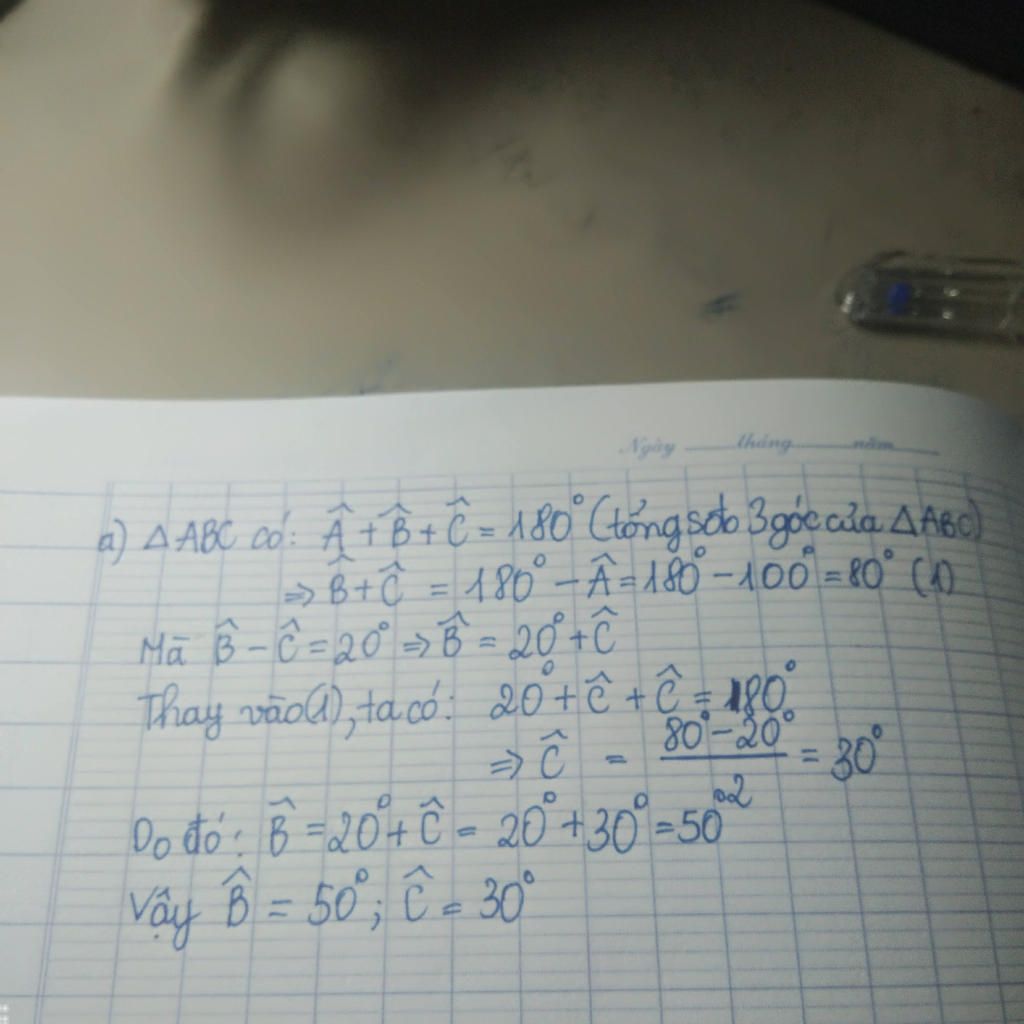 Ngày tháng năm
a) △ABC có: Â + B̂ + Ĉ = 180° (tổng số đo 3 góc của △ABC)
⇒ B̂ + Ĉ = 180° − Â = 180° − 100° = 80° (1)
Mà B̂ − Ĉ = 20° ⇒ B̂ = 20° + Ĉ
Thay vào (1), ta có: 20° + Ĉ + Ĉ = 180°
⇒ Ĉ = (80° − 20°)/2 = 30°
Do đó: B̂ = 20° + Ĉ = 20° + 30° = 50°
Vậy B̂ = 50°; Ĉ = 30°